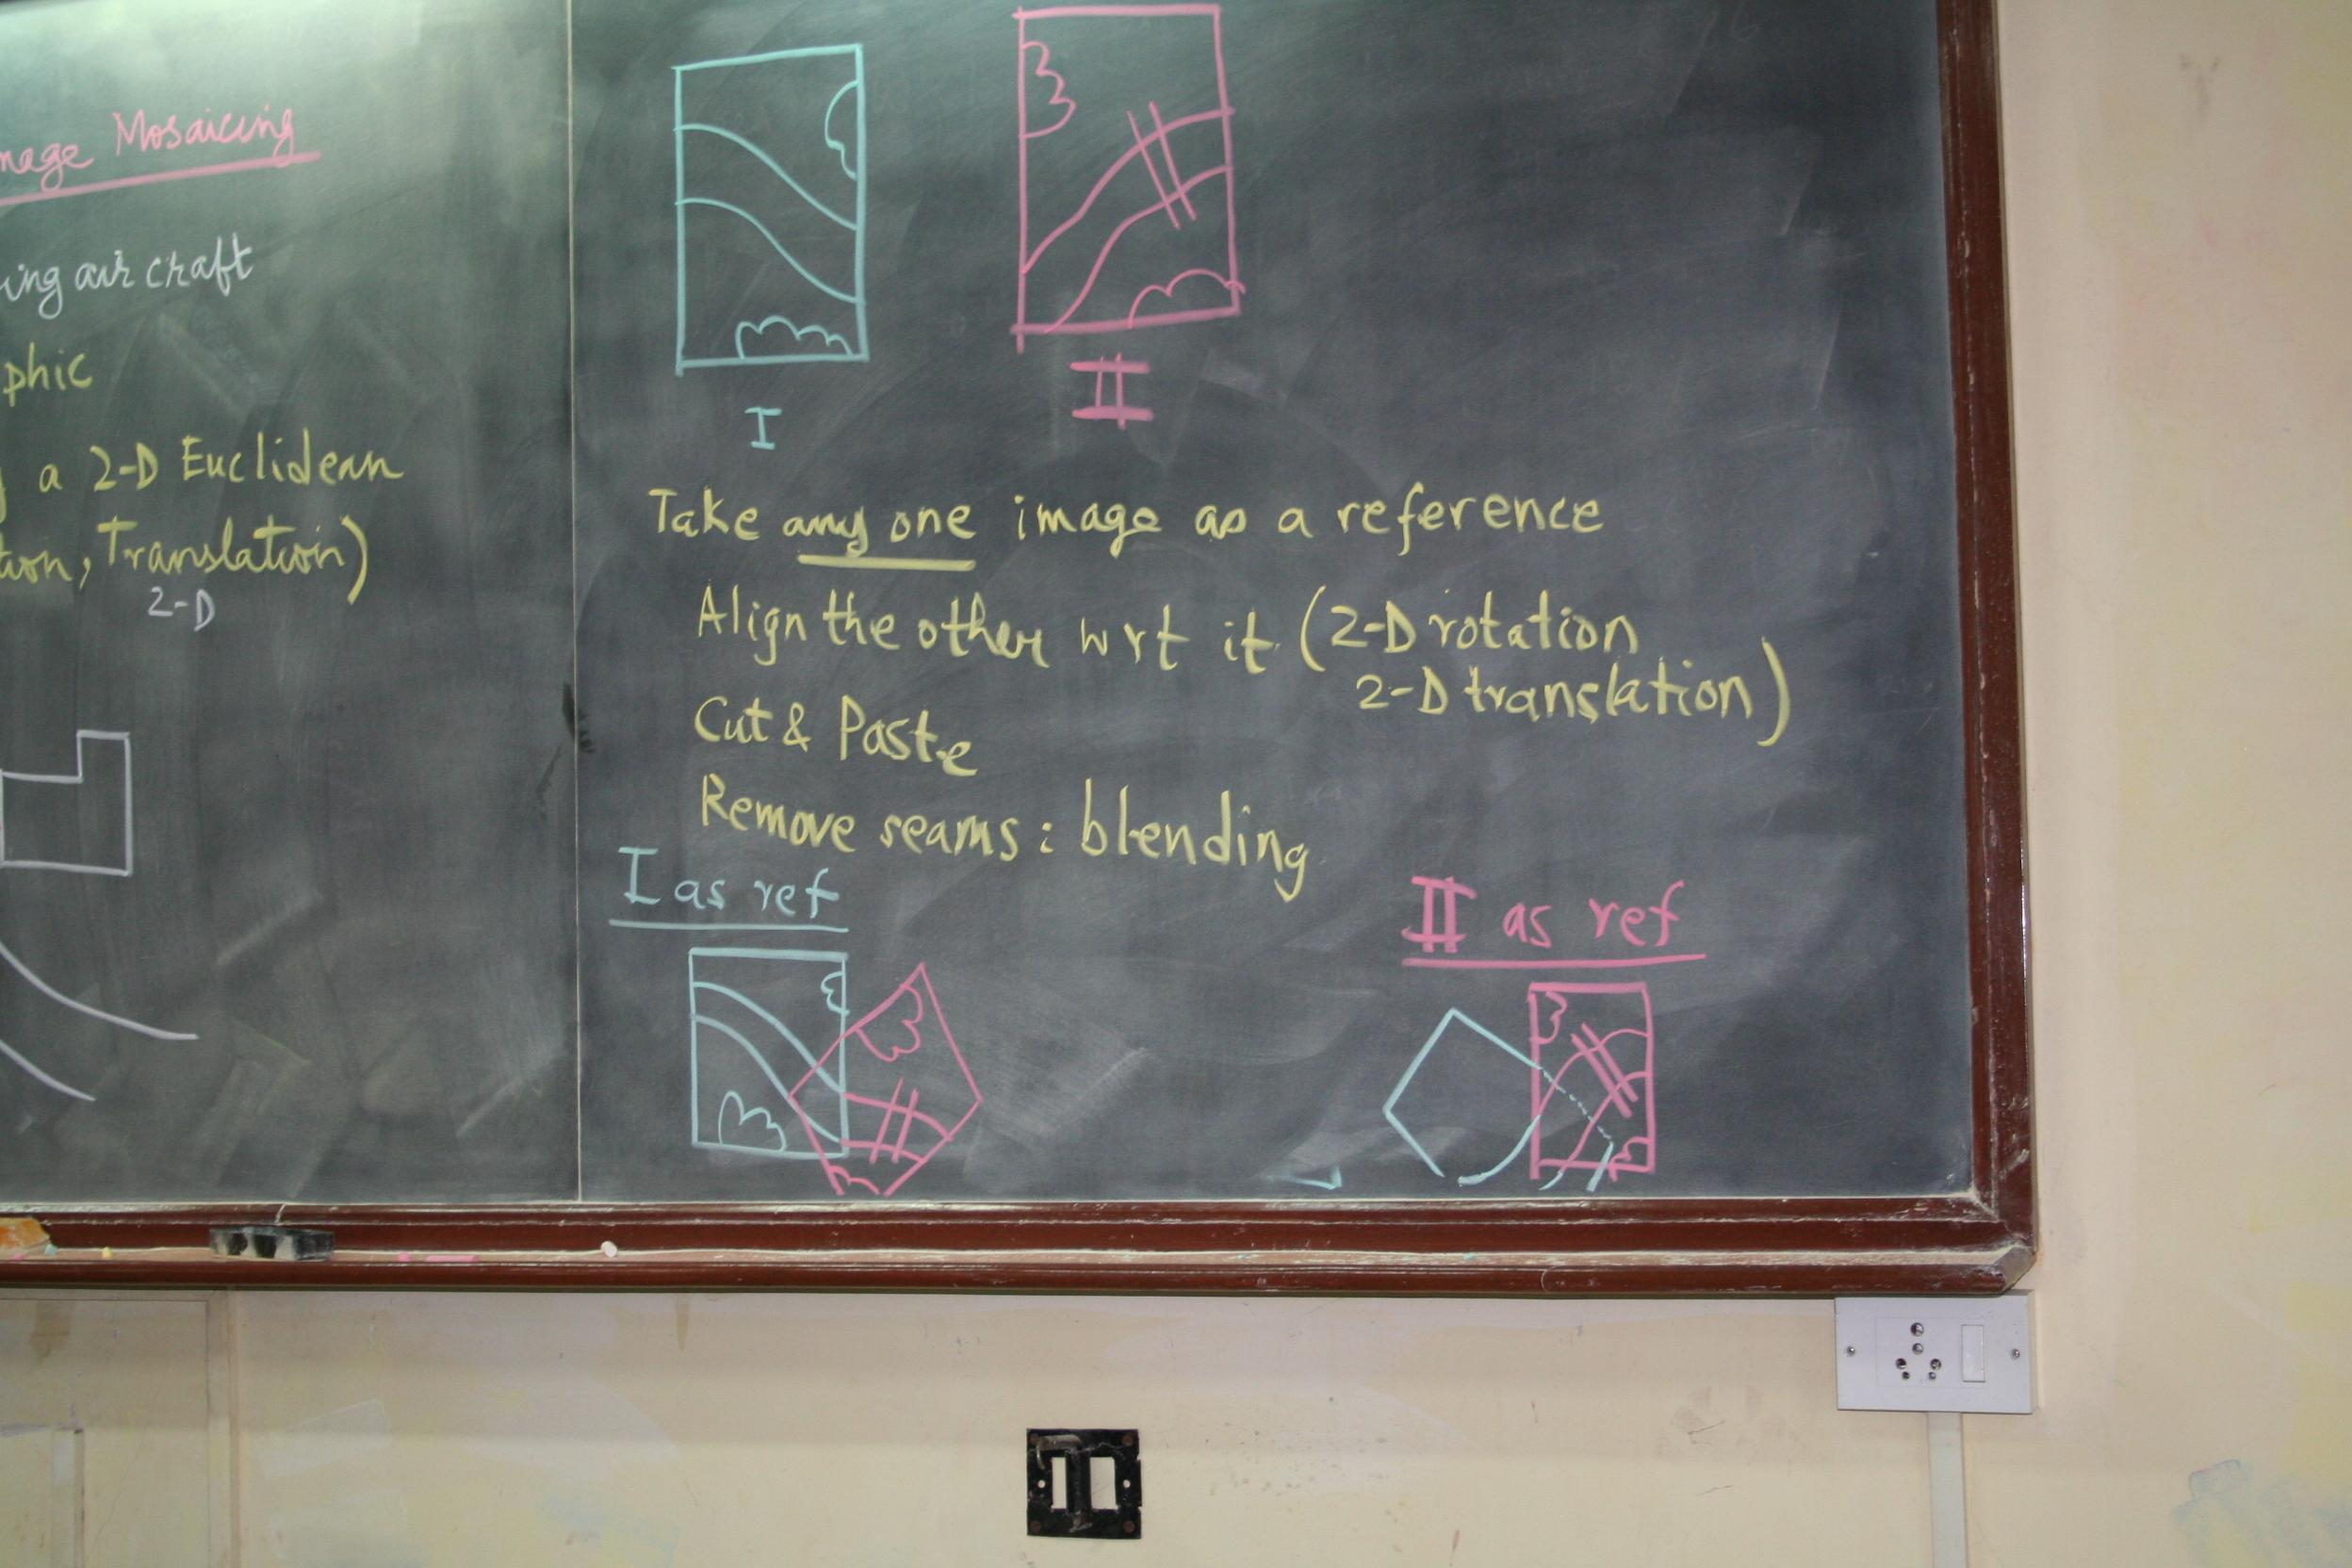 Mosaicing
air craft
phic
a 2-D Euclidean
Translation)
2-D
I
II
Take any one image as a reference
Align the other wrt it (2-D rotation
2-D translation)
Cut & Paste
Remove seams : blending
I as ref
II as ref